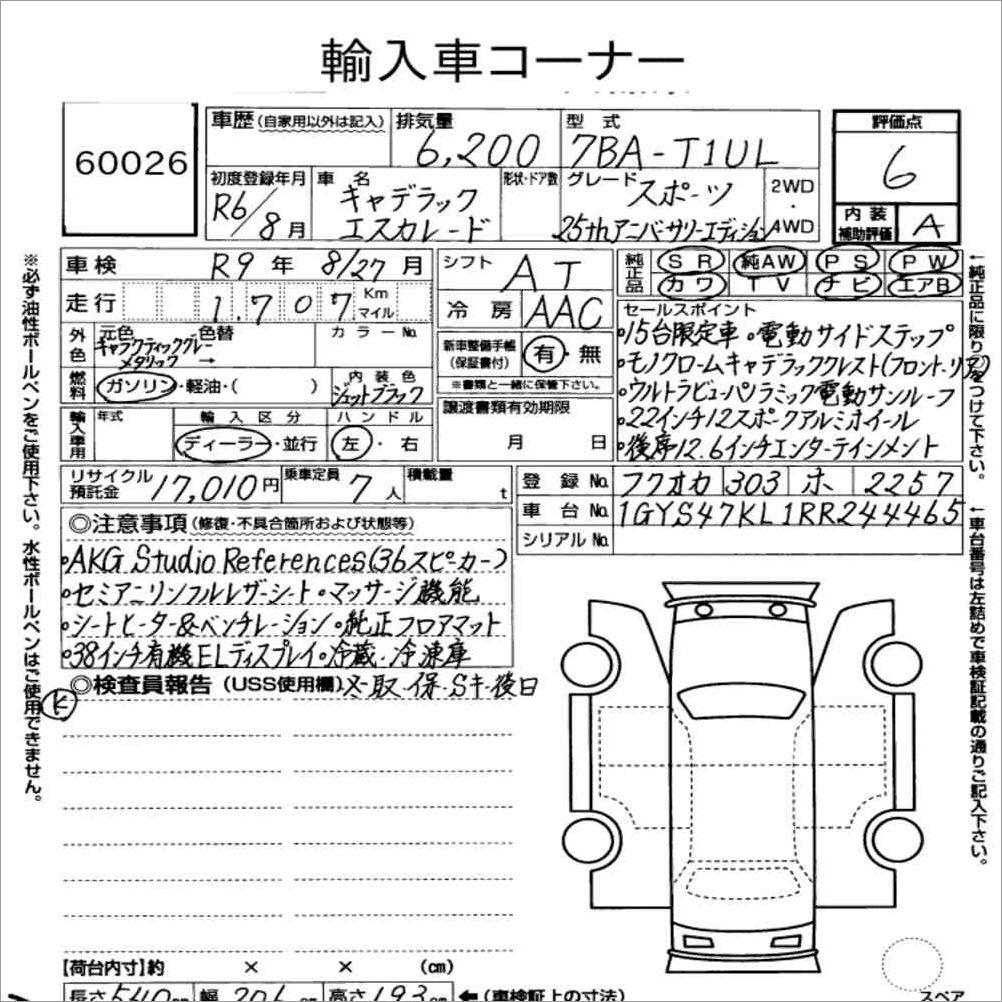 輸入車コーナー
60026
車歴 (自家用以外は記入)
排気量 6,200
型式 7BA-T1UL
評価点 6
初度登録年月 R6/8月
車名 キャデラック エスカレード
形状・ドア数
グレード スポーツ 25thアニバーサリーエディション
2WD・4WD
内装補助評価 A
車検 R9年 8/27月
シフト AT
純正品 SR 純AW PS PW
カワ TV ナビ エアB
走行 1,707 Km マイル
冷房 AAC
セールスポイント
・15台限定車・電動サイドステップ
・モノクロームキャデラッククレスト(フロント・リア)
・ウルトラビューパノラミック電動サンルーフ
・22インチ12スポークアルミホイール
・後席12.6インチエンターテインメント
外色 元色 色替 カラーNo.
ギャラクティックグレーメタリック →
新車整備手帳(保証書付) 有・無
※書類と一緒に保管下さい。
燃料 ガソリン・軽油・( )
内装色 ジェットブラック
輸入車用 年式 輸入区分 ハンドル
ディーラー・並行 左・右
譲渡書類有効期限
月 日
リサイクル預託金 17,010円
乗車定員 7人
積載量 t
登録No. フクオカ 303 ホ 2257
車台No. 1GYS47KL1RR244465
シリアルNo.
◎注意事項 (修復・不具合箇所および状態等)
・AKG Studio References(36スピーカー)
・セミアニリンフルレザーシート・マッサージ機能
・シートヒーター&ベンチレーション・純正フロアマット
・38インチ有機ELディスプレイ・冷蔵・冷凍庫
◎検査員報告 (USS使用欄) 取・保・Sキ・後日
【荷台内寸】約 × × (cm)
長さ540cm 幅206 高さ193cm
←(車検証上の寸法)
スペア
※必ず油性ボールペンをご使用下さい。水性ボールペンはご使用できません。
←純正品に限り○をつけて下さい。
←車台番号は左詰めで車検証記載の通りご記入下さい。